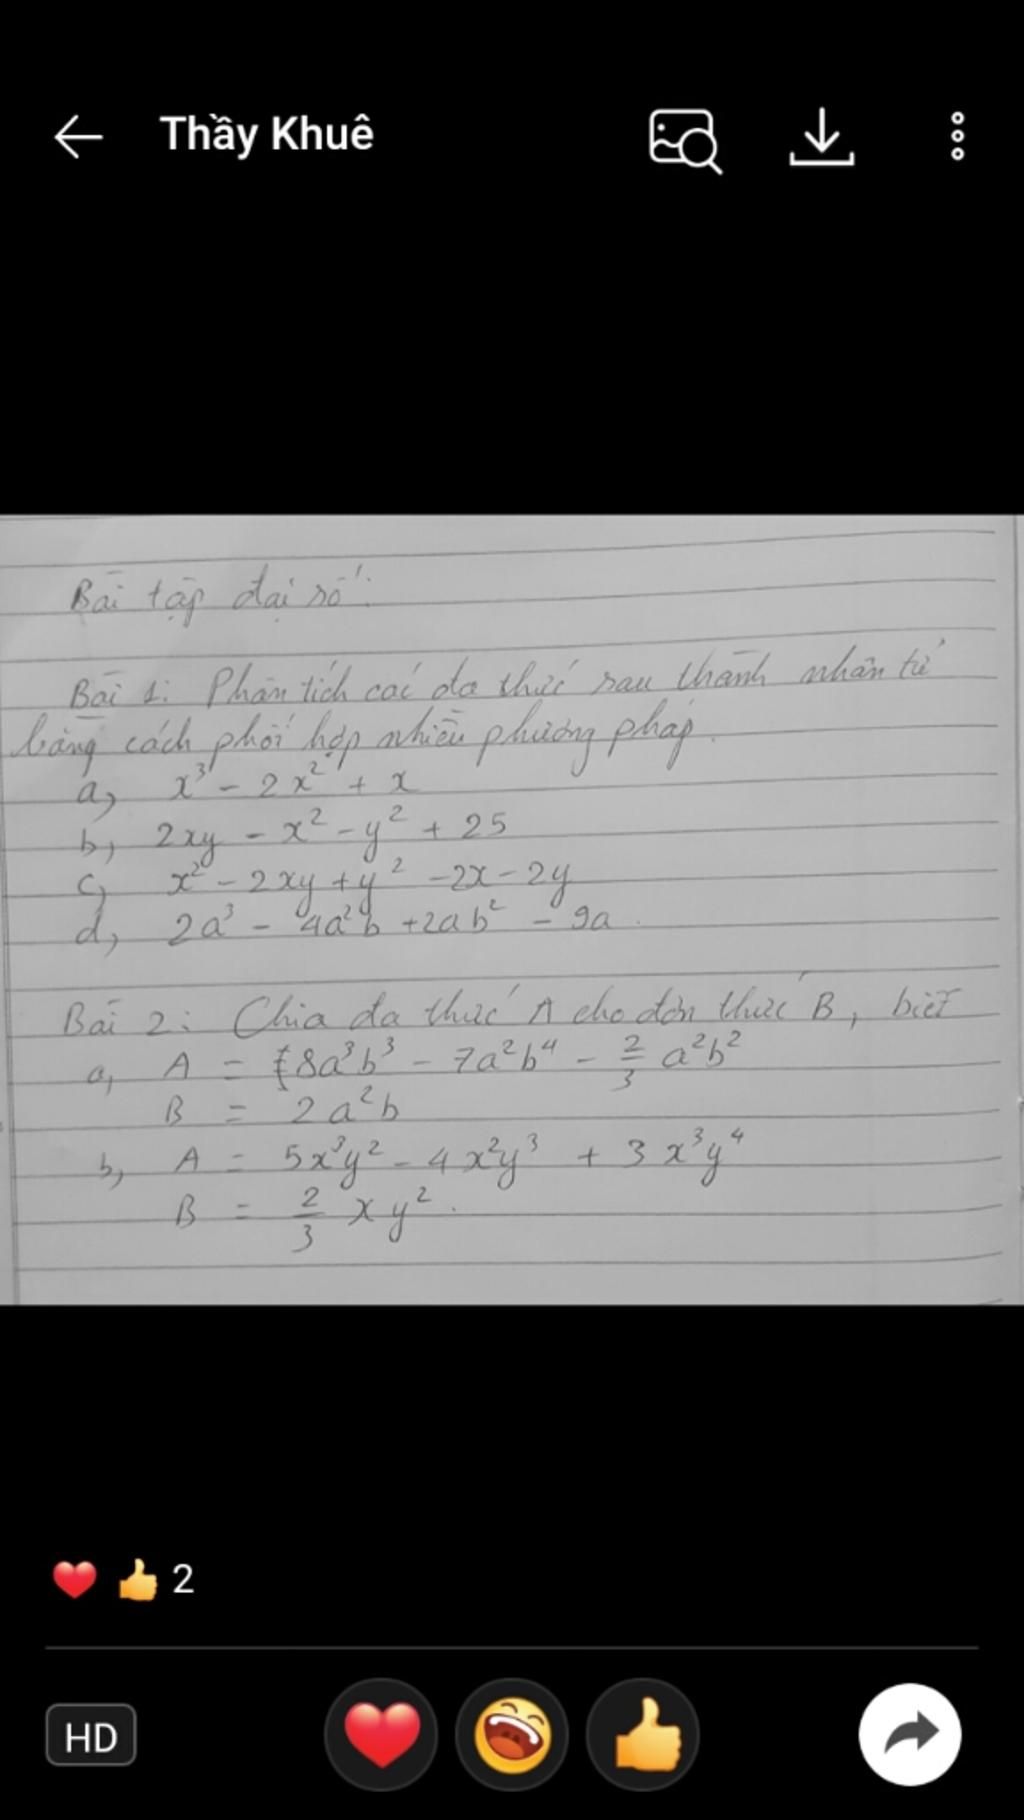 Thầy Khuê
Bài tập đại số:
Bài 1: Phân tích các đa thức sau thành nhân tử
bằng cách phối hợp nhiều phương pháp.
a, x³ - 2x² + x
b, 2xy - x² - y² + 25
c, x² - 2xy + y² - 2x - 2y
d, 2a³ - 4a²b + 2ab² - 9a.
Bài 2: Chia đa thức A cho đơn thức B, biết
a, A = 8a³b³ - 7a²b⁴ - 2/3 a²b²
B = 2a²b
b, A = 5x³y² - 4x²y³ + 3x³y⁴
B = 2/3 xy².
2
HD